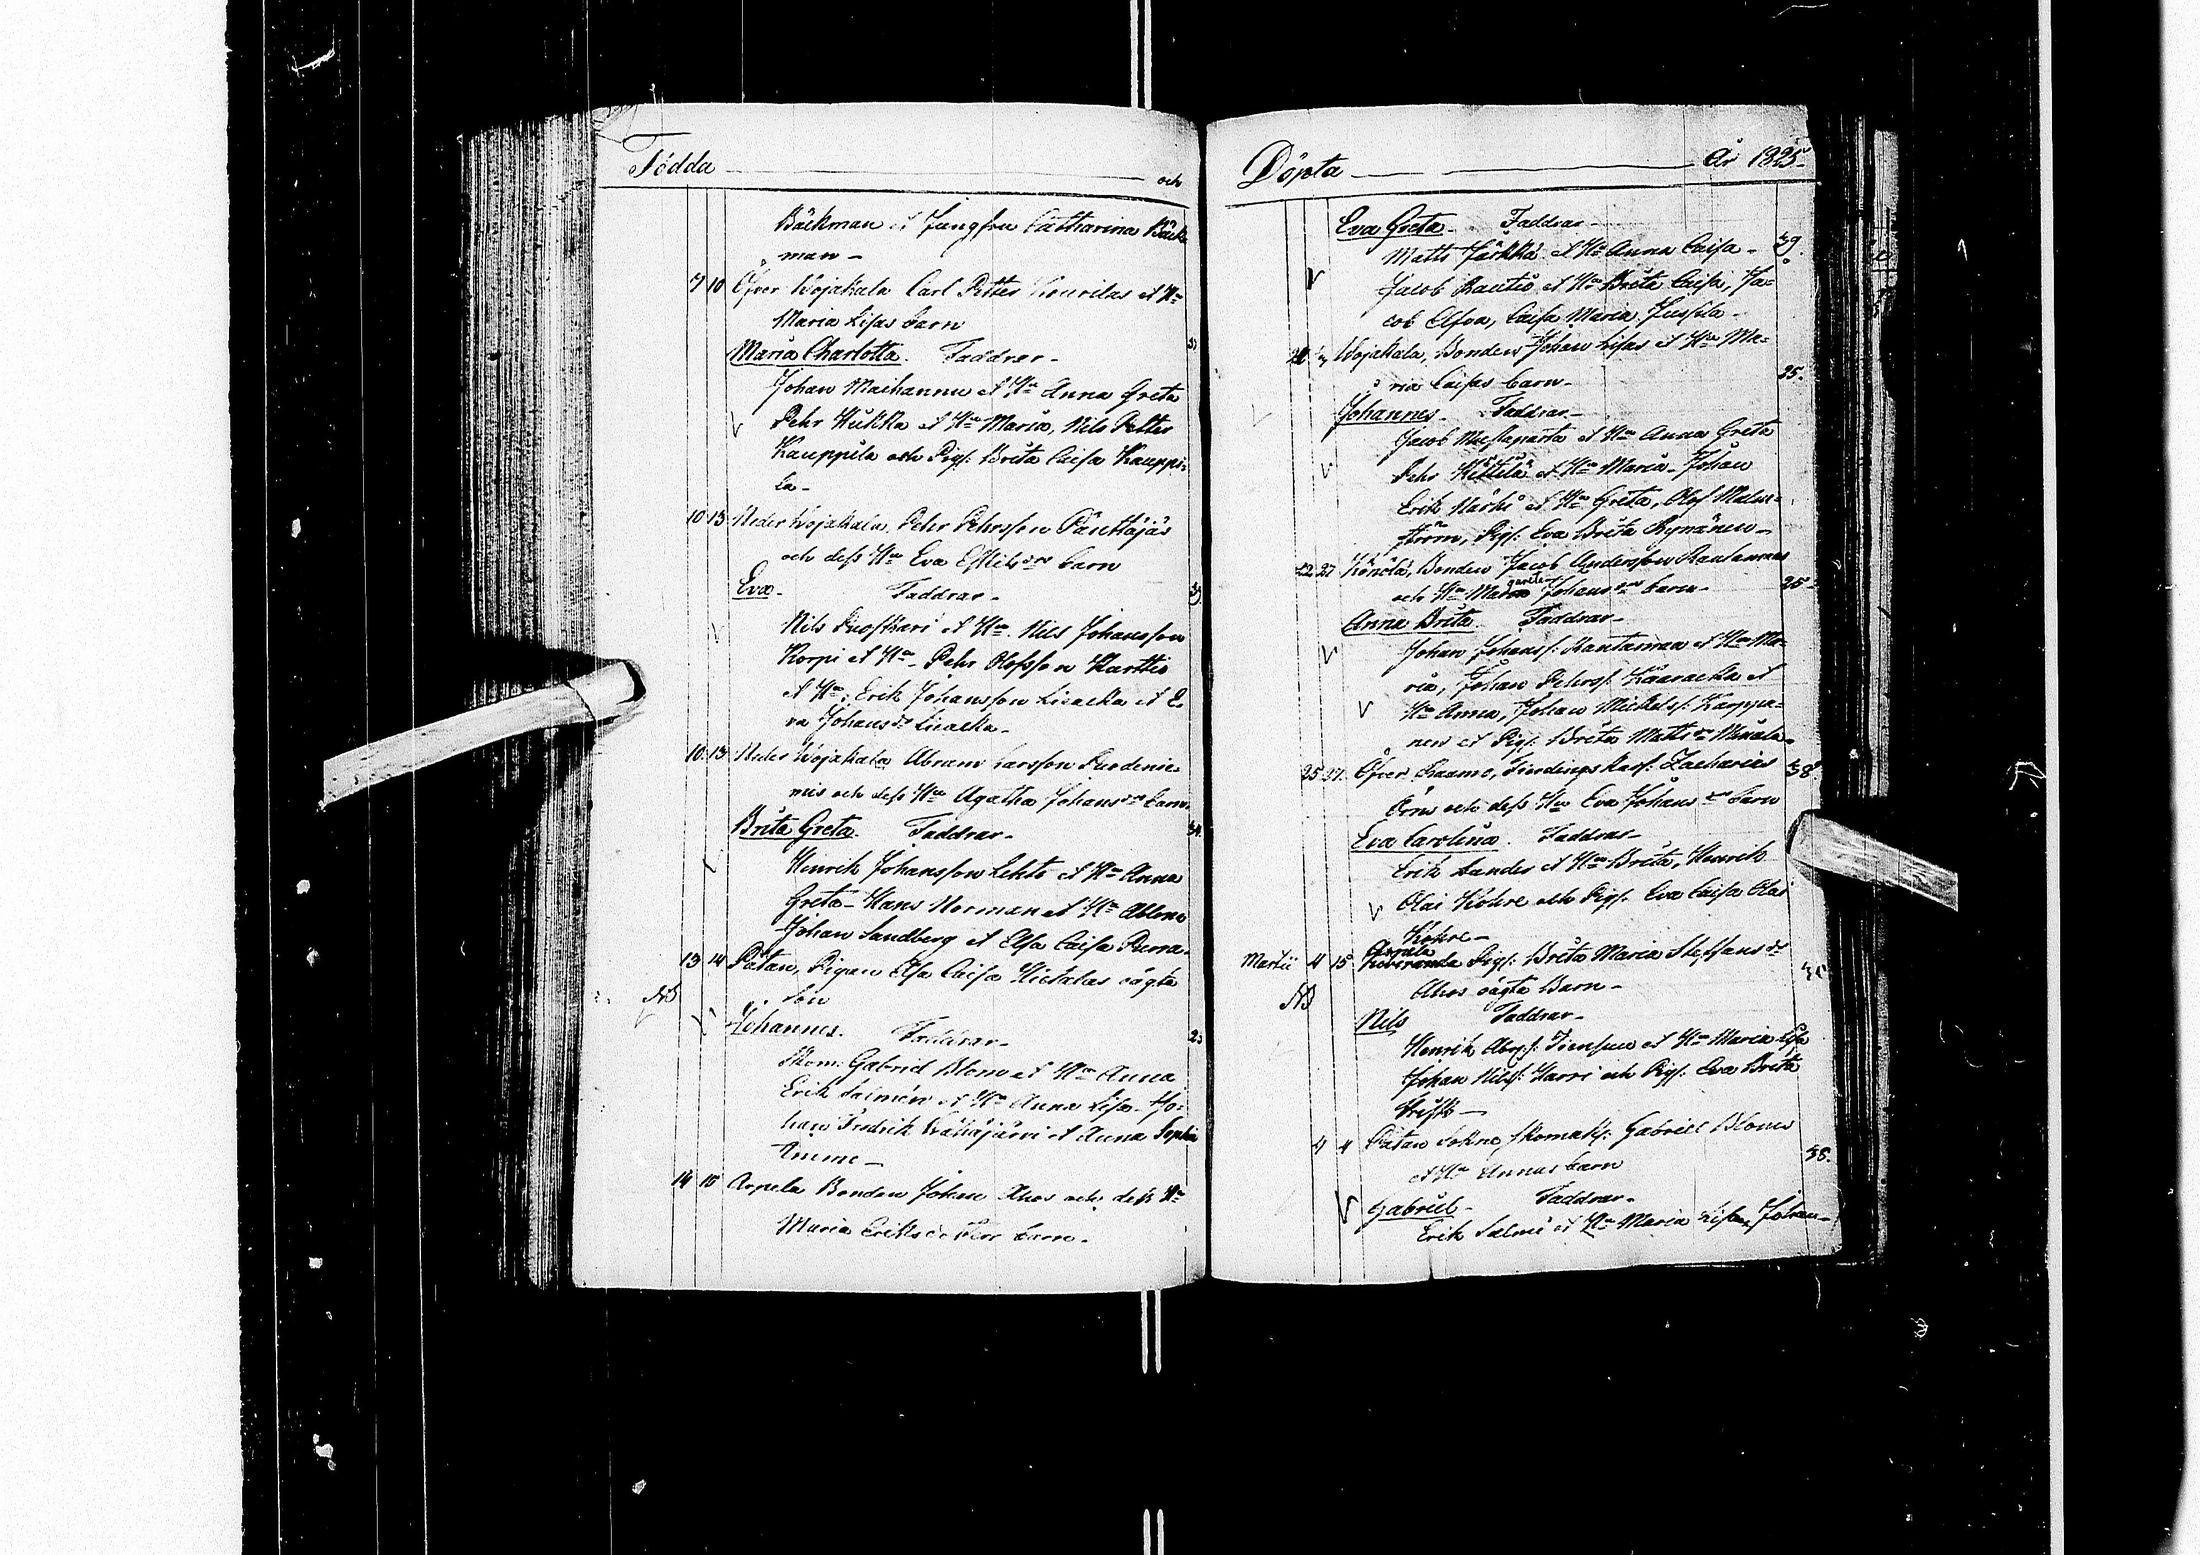 Födda och
Bäckman et Jungfru Catharina Bäck-
man -
7 10 Öfver Wojakala Carl Petter Kourilas et H:u
Maria Lisas barn
Maria Charlotta. Faddrar -
Johan Maihannu et H:u Anna Greta
Pehr Kukka et H:u Maria, Nils Petter
Kauppila och Pig: Brita Caisa Kauppi-
la -
10 13 Neder Wojakala, Pehr Pehrsson
och dess H:u Eva barn
Eva. Faddrar -
Nils et H:u Nils Johansson
Korpi et H:u Pehr Olofsson Karttio
et H:u, Erik Johansson Liacka et E-
va Johansdr Liacka -
10 13 Neder Wojakala Abram Larsson
och dess H:u Agatha Johansdrs barn
Brita Greta. Faddrar - 34.
Henrik Johansson Lehto et H:u Anna
Greta - Hans Norman et H:u
Johan Sandberg et Elsa Caisa Purra-
13 14 Pätan, Pigan Elsa Caisa Hietalas oägta
NB Son
Johannes. Faddrar -
Skom: Gabriel Blom et H:u Anna
Erik et H:u Anna Lisa - Jo-
han Fredrik Wähäjärvi et Anna Sophia
14 15 Arpela Bonden Johan Ahos och dess H:u
Maria Eriksdotter barn -
Döpta År 1825
Eva Greta - Faddrar -
Matts Järkkä et H:u Anna Caisa - 39.
Jacob Rautio et H:u Brita Caisa, Ja-
cob Alfva, Caisa Maria Jussila -
Wojakala, Bonden Johan Lisas et H:u Ma-
ria Caisas barn - 25.
Johannes - Faddrar -
Jacob et H:u Anna Greta
Pehr Kittilä et H:u Maria - Johan
Erik Närhi et H:u Greta, Olof Malm-
ström, Pig: Eva Brita Rymänen -
22 27 Könölä, Bonden Jacob Andersson Rautamaa
och H:u Margareta Johansdrs barn - 25 -
Anna Brita. Faddrar -
Johan Johanss: Rantamaa et H:u Ma-
ria, Johan Pehrss: Kaaracka et
H:u Anna, Johan Mickelss: Karppi-
nen et Pig: Brita Mattsdr
25 27. Öfver Raumo, Zacharias 38
och dess H:u Eva Johansdrs barn
Eva Carolina. Faddrar -
Erik Lander et H:u Brita, Henrik
Olai Kokre och Pig: Eva Caisa Olai
Kokre -
Arpela
Martii 4 15 Pig: Brita Maria Steffansdr
NB Ahos oägta Barn -
Nils Faddrar -
Henrik Abrss: et H:u Maria Lisa
Johan Nilss: Harri och Pig: Eva Brita
4 Pätan Sokne, Skomak: Gabriel Bloms
et H:u Annas barn 38.
Gabriel - Faddrar -
Erik Salmi et H:u Maria Lisa, Johan -